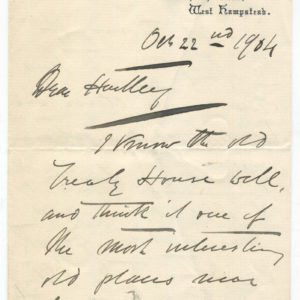 West Hampstead.
Oct 22nd 1904
Dear Hartley
I know the old
Treaty House well,
and think it one of
the most interesting
old places near